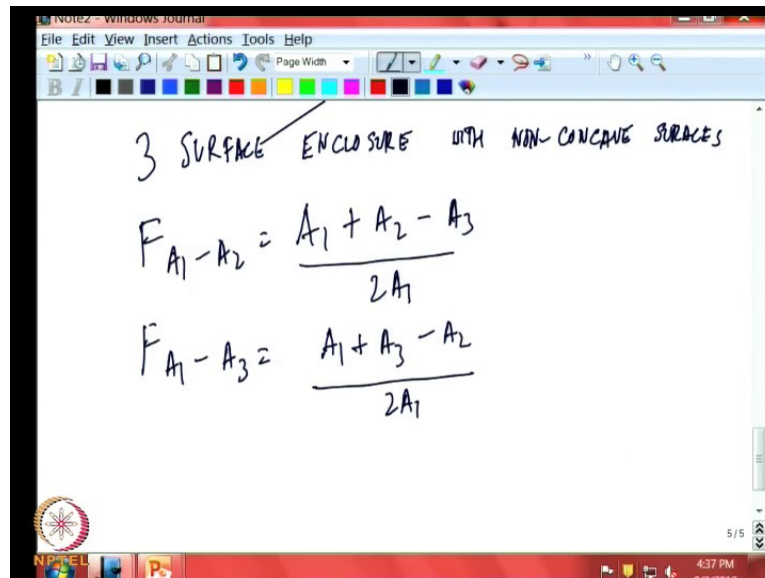 Note2 - Windows Journal
File Edit View Insert Actions Tools Help
Page Width
B I
3 SURFACE ENCLOSURE WITH NON-CONCAVE SURACES
F_{A_1-A_2} = \frac{A_1 + A_2 - A_3}{2A_1}
F_{A_1-A_3} = \frac{A_1 + A_3 - A_2}{2A_1}
5/5
NPTEL
4:37 PM